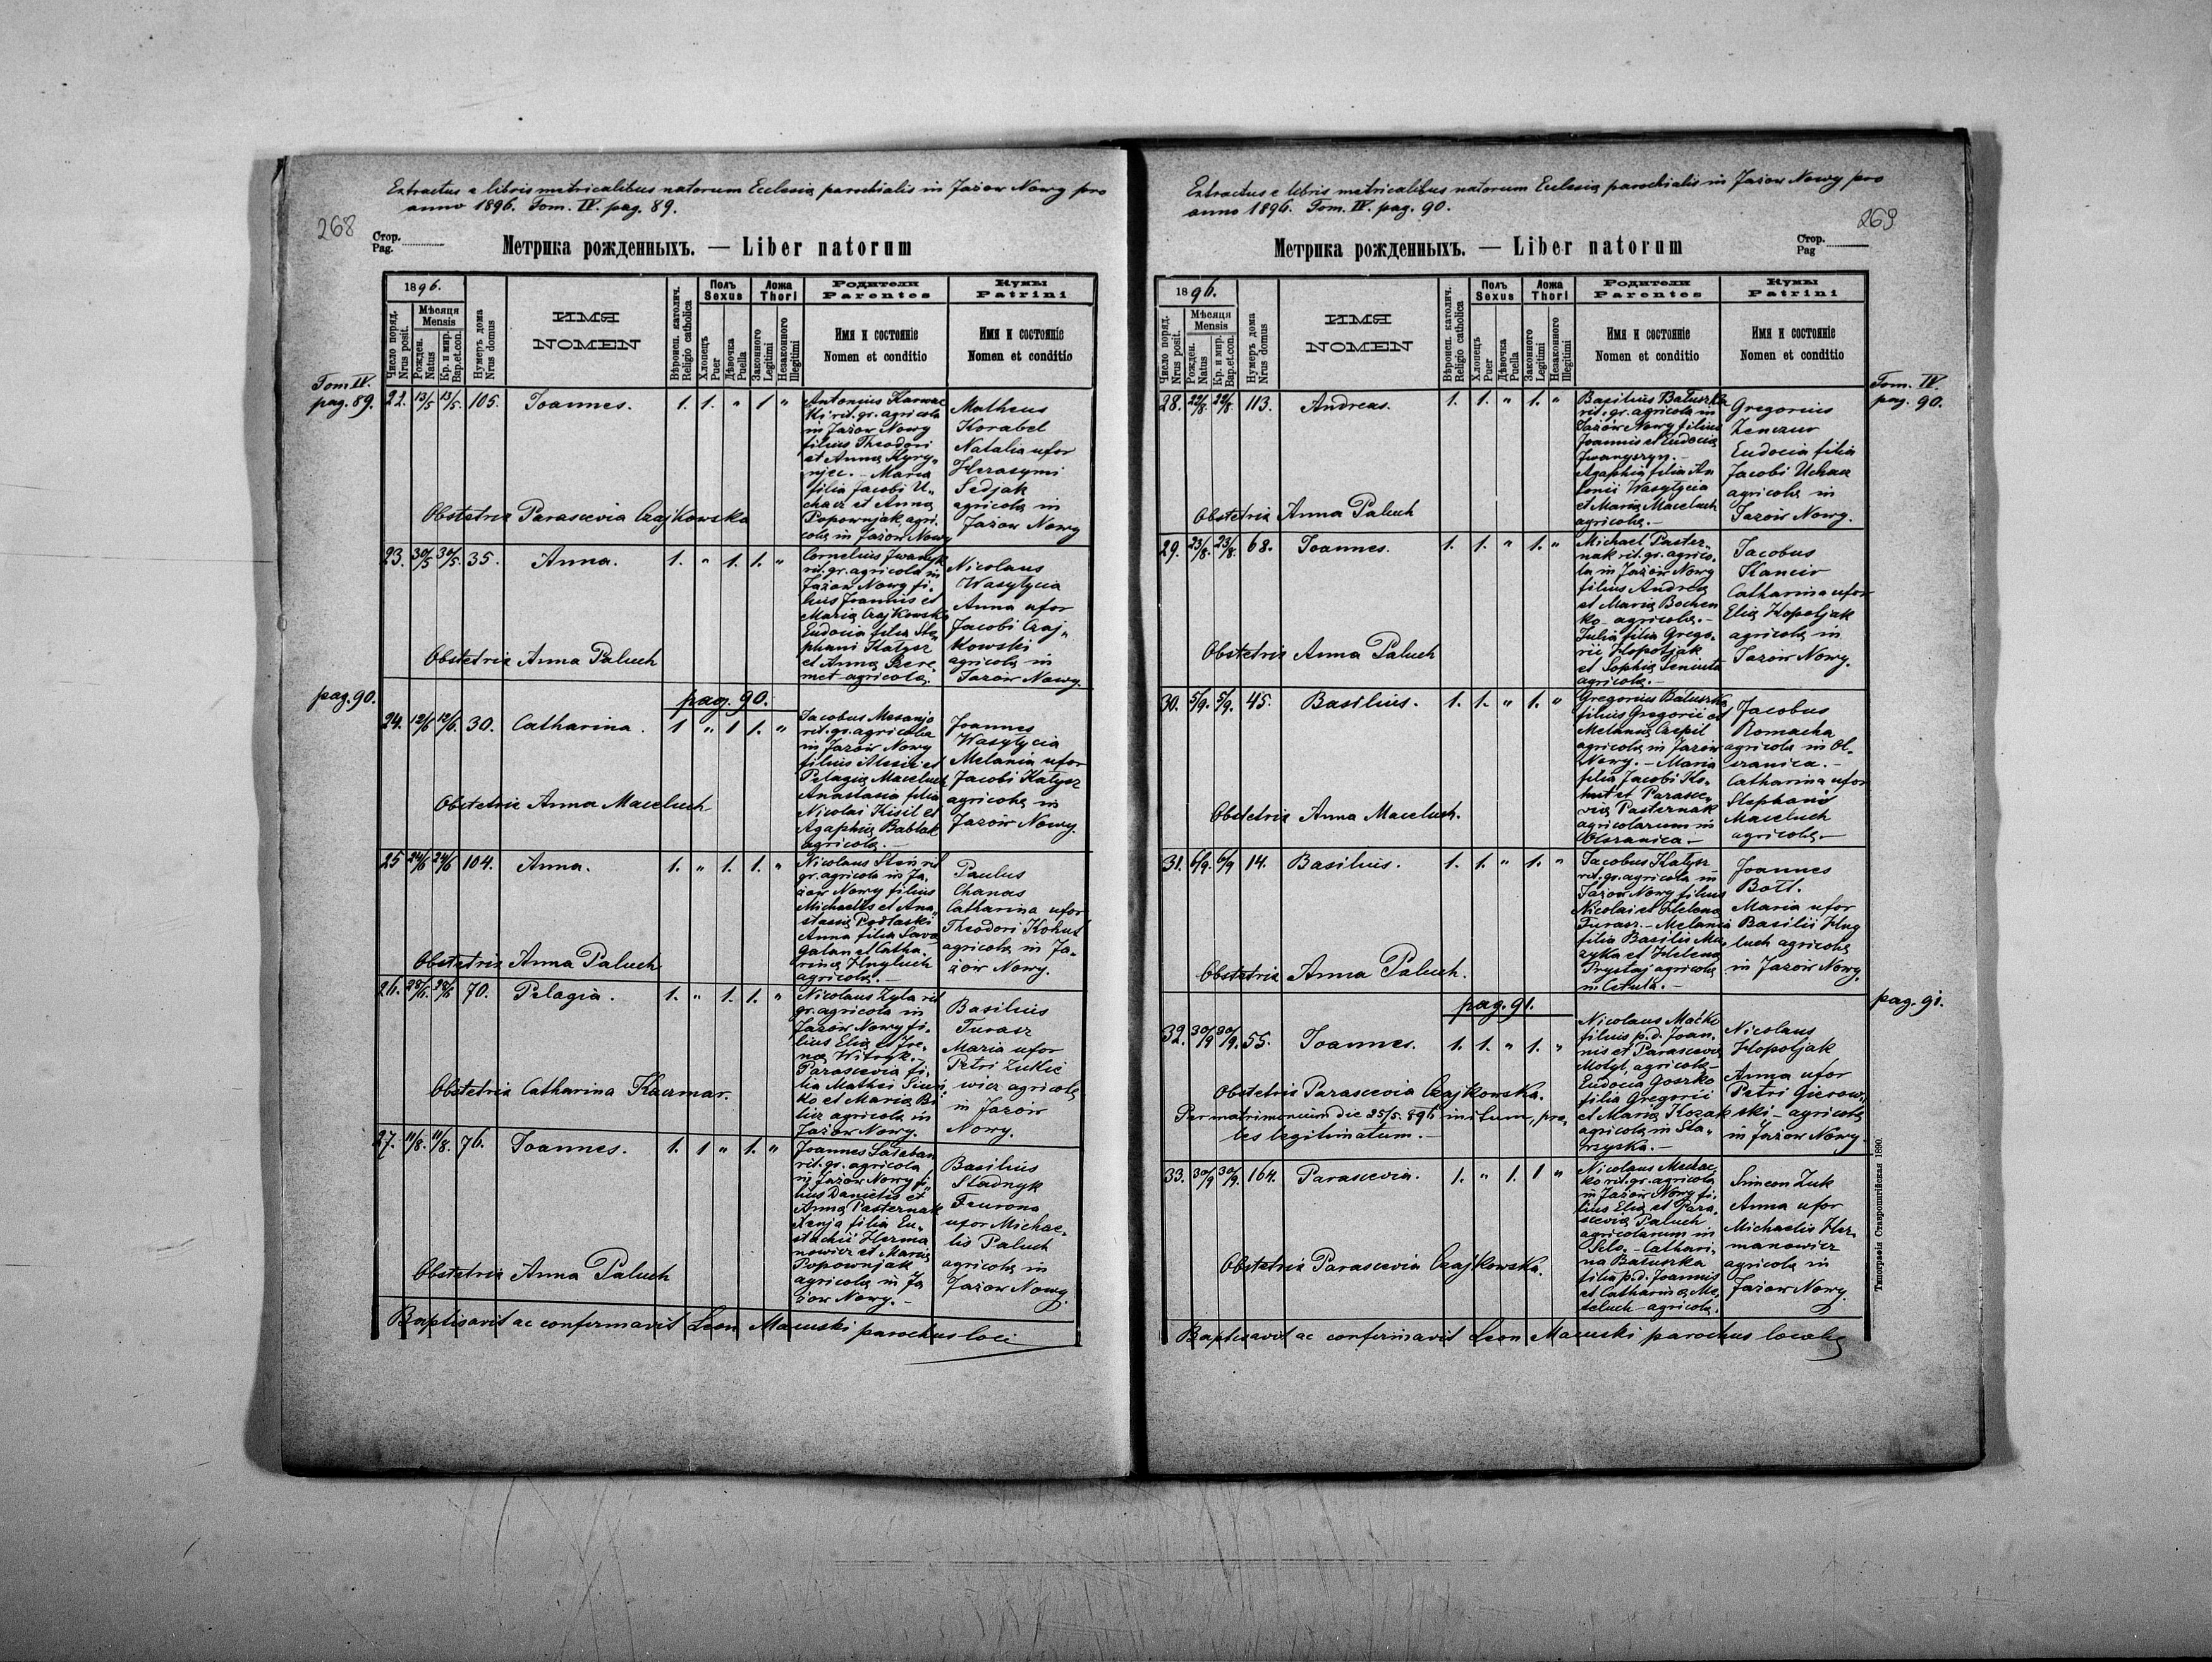 Extractus e libris metricalibus natorum Ecclesiæ parochialis in Jażow Nowy pro
anno 1896. Tom. IV. pag. 89.
268
Стор.
Pag.
Метрика рожденныхъ. — Liber natorum
1896.
Число поряд.
Nrus posit.
Мѣсяця
Mensis
Рожден.
Natus
Кр. и мир.
Bap.et.con.
Нумеръ дома
Nrus domus
ИМЯ
NOMEN
Вѣроисп. католич.
Religio catholica
Полъ
Sexus
Хлопецъ
Puer
Дѣвочка
Puella
Ложа
Thori
Законного
Legitimi
Незаконного
Illegitimi
Родители
Parentes
Имя и состояніе
Nomen et conditio
Кумы
Patrini
Имя и состояніе
Nomen et conditio
Tom. IV.
pag. 89.
22. 13/5 13/5. 105. Joannes. 1. 1. „ 1 „
Antonius
rit. gr. agricola
in Jażow Nowy
filius Theodori
et Annæ Hyry„
njec. – Maria
filia Jacobi U„
chacz et Annæ
Popownjak, agri.
colæ in Jażow Nowy
Matheus
Korabel
Natalia uxor
Herasymi
Sedjak
agricolæ in
Jażow Nowy
Obstetrix Parascevia Czajkowska
23. 30/5 30/5. 35. Anna. 1. „ 1. 1. „
Cornelius
rit. gr. agricola in
Jażow Nowy fi.
lius Joannis et
Mariæ Czajkowska
Eudocia filia Ste
phani Katysz
et Annæ Szere
met agricolæ
Nicolaus
Wasylycia
Anna uxor
Jacobi Czaj„
kowski
agricolæ in
Jazow Nowy.
Obstetrix Anna Paluch
pag. 90.
pag. 90.
24. 12/6 12/6. 30. Catharina. 1 „ 1 1. „
Jacobus Mesanjo
rit. gr. agricola
in Jazów Nowy
filius Alexii et
Pelagiæ Maceluch
Anastasia filia
Nicolai Kisil et
Agaphiæ Bablak
agricolæ. –
Joannes
Wasylycia
Melania uxor
Jacobi Katysz
agricolæ in
Jazów Nowy.
Obstetrix Anna Maceluch
25 24/6 24/6 104. Anna. 1. „ 1. 1. „
Nicolaus Steiń rit
gr. agricola in Ja.
żow Nowy filius
Michaelis et Ana
stasiæ Podlaski
Anna filia Savæ
Galan et Catha.
rinæ Hnyluch
agricolæ. –
Paulus
Chanas
Catharina uxor
Theodori Kohut
agricolæ in Ja„
zów Nowy.
Obstetrix Anna Paluch
26. 28/6. 28/6 70. Pelagia. 1. „ 1. 1. „
Nicolaus Zyla rit
gr. agricola in
Jazów Nowy fi.
lius Eliæ et Ire„
næ Witryk.
Parascevia fi.
lia Mathei
ko et Mariæ Bi
licz agricola in
Jażow Nowy.
Basilius
Turasz
Maria uxor
Petri Lukie
wicz agricolæ
in Jazów
Nowy.
Obstetrix Catharina Kaczmar.
27. 11/8. 11/8. 76. Joannes. 1. 1 „ 1. „
Joannes
rit. gr. agricola
in Jażow Nowy fi
lius Danielis et
Annæ Pasternak
Xenja filia Eu„
stachii Herma
nowicz et Mariæ
Popownjak
agricolæ in Ja
żow Nowy. –
Basilius
Stadnyk
Feurona
uxor Michae„
lis Paluch
agricolæ in
Jażow Nowy.
Obstetrix Anna Paluch
Baptisavit ac confirmavit Leon Macuski parochus loci
Extractus e libris metricalibus natorum Ecclesiæ parochialis in Jażow Nowy pro
anno 1896. Tom. IV. pag. 90.
269
Стор.
Pag
Метрика рожденныхъ. — Liber natorum
1896.
Число поряд.
Nrus posit.
Мѣсяця
Mensis
Рожден.
Natus
Кр. и мир.
Bap.et.con.
Нумеръ дома
Nrus domus
ИМЯ
NOMEN
Вѣроисп. католич.
Religio catholica
Полъ
Sexus
Хлопецъ
Puer
Дѣвочка
Puella
Ложа
Thori
Законного
Legitimi
Незаконного
Illegitimi
Родители
Parentes
Имя и состояніе
Nomen et conditio
Кумы
Patrini
Имя и состояніе
Nomen et conditio
Tom. IV.
pag. 90.
28. 22/8. 22/8. 113. Andreas. 1. 1. „ 1. „
Basilius Batuszka
rit. gr. agricola in
Jażów Nowy filius
Joannis et Eudociæ
Iwanyszyn. –
Agaphia filia An
tonii Wasylycia
et Mariæ Maceluch
agricolæ. –
Gregorius
Zenczur
Eudocia filia
Jacobi Uchacz
agricolæ in
Jazów Nowy.
Obstetrix Anna Paluch
29. 23/8. 23/8. 68. Joannes. 1. 1. „ 1. „
Michael Paster„
nak rit. gr. agrico„
la in Jażów Nowy
filius Andreæ
et Mariæ Bochen
ko agricolæ. –
Julia filia Grego„
rii Hopoljak
et Sophiæ Seniuta
agricolæ. –
Jacobus
Hanciw
Catharina uxor
Eliæ Hopoljak
agricolæ in
Jazów Nowy.
Obstetrix Anna Paluch
30. 5/9. 5/9. 45. Basilius. 1. 1. „ 1. „
Gregorius Batuszka
filius Gregorii et
Melaniæ Czepil
agricolæ in Jazów
Nowy. – Maria
filia Jacobi Ko„
hut et Parasce„
viæ Pasternak
agricolarum in
Olszanica –
Jacobus
Romacha
agricola in Ol„
szanica. –
Catharina uxor
Stephani
Maceluch
agricolæ. –
Obstetrix Anna Maceluch.
31. 6/9. 6/9 14. Basilius. 1. 1. „ 1. „
Jacobus Katysz
rit. gr. agricola in
Jazow Nowy filius
Nicolai et Helenæ
Turasz. – Melania
filia Basilii Mu„
zyka et Helenæ
Prystaj agricolæ
in Cetula. –
Joannes
Bott.
Maria uxor
Basilii Hny
luch agricolæ
in Jazów Nowy.
Obstetrix Anna Paluch.
pag. 91.
pag. 91.
32. 30/9 30/9. 55. Joannes. 1. 1. „ 1. „
Nicolaus Maćko
filius p.d. Joan„
nis et Parasceviæ
Motyl, agricolæ –
Eudocia Goszko
filia Gregorii
et Mariæ Kozak
agricolæ in Sta„
rzyska. –
Nicolaus
Hopoljak
Anna uxor
Petri Gierow„
ski – agricolæ
in Jażow Nowy.
Obstetrix Parascevia Czajkowska.
Per matrimonium die 25/5. 896 initum, pro„
les legitimatum. –
33. 30/9 30/9. 164. Parascevia. 1. „ 1. 1 „
Nicolaus
ko rit. gr. agricola
in Jażow Nowy fi.
lius Eliæ et Para.
sceviæ Paluch
agricolarum in
Szlo. – Cathari„
na Batuszka
filia p.d. Joannis
et Catharinæ Ma„
celuch agricolæ.
Simeon Zuk
Anna uxor
Michaelis Her„
manowicz
agricolæ in
Jażow Nowy.
Obstetrix Parascevia Czajkowska.
Baptisavit ac confirmavit Leon Macuski parochus localis
Типографія Ставропигійская 1890.